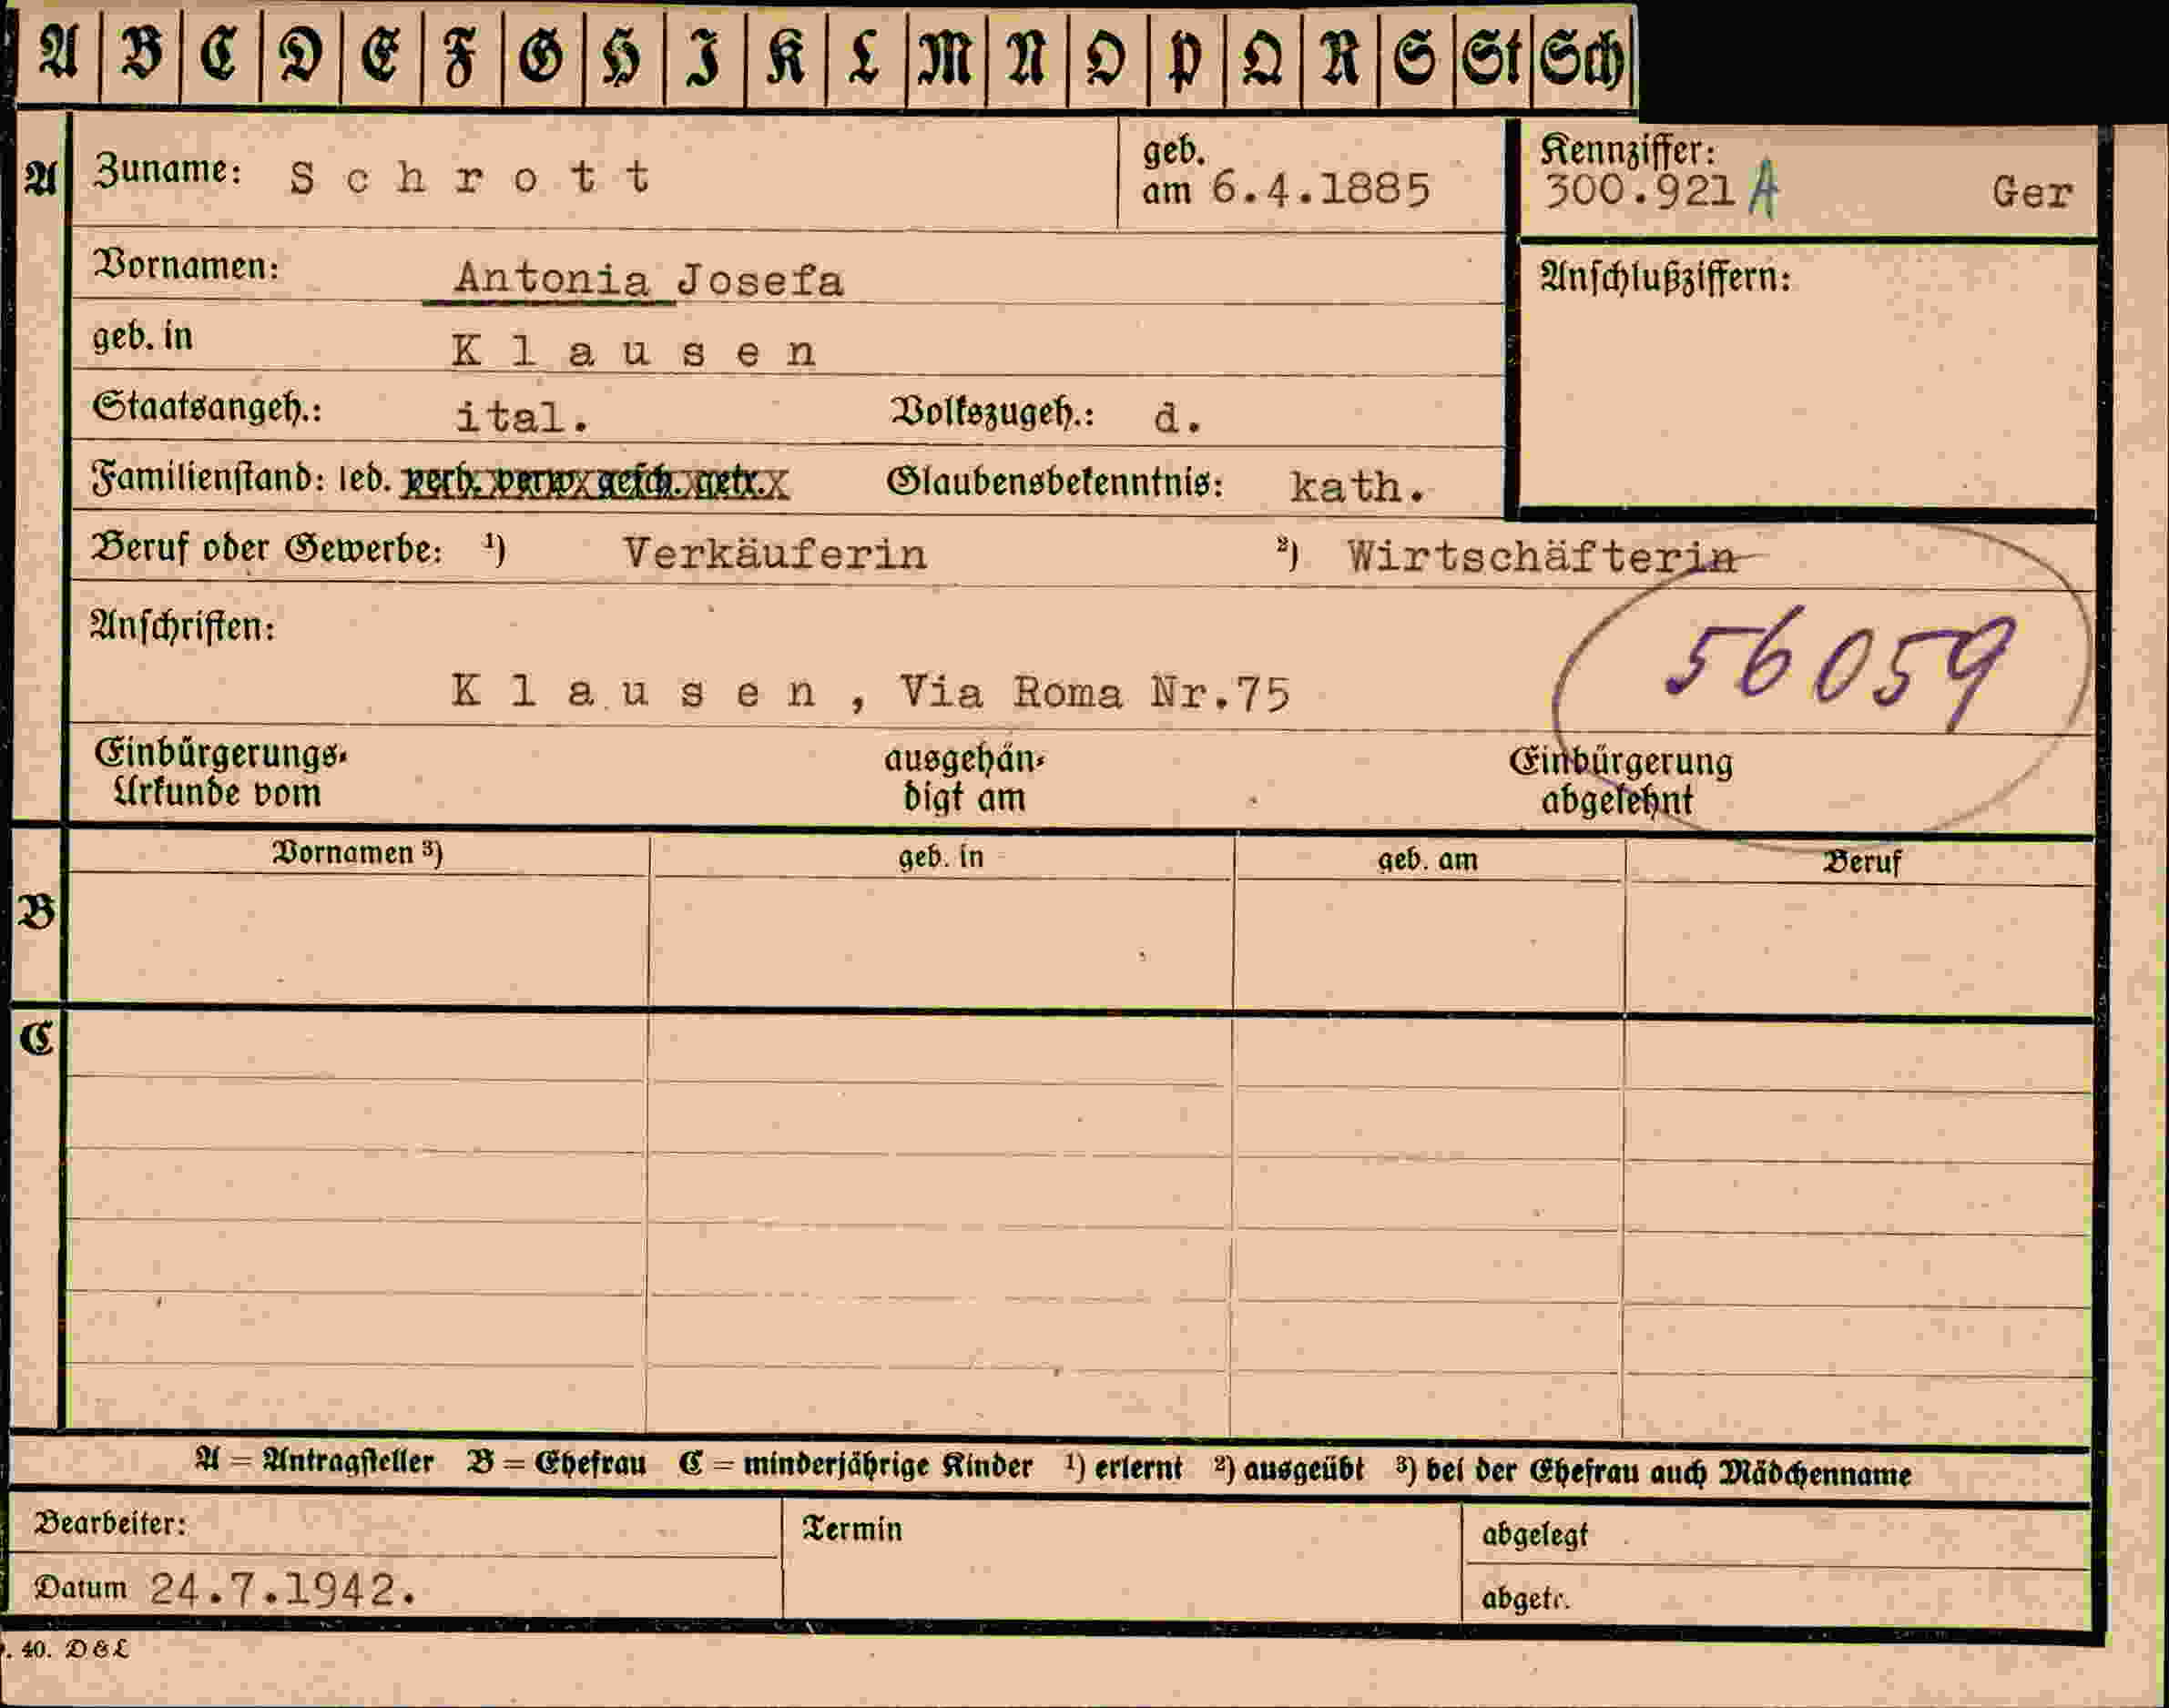 A B C D E F G H I K L M N O P Q R S St Sch
A Zuname: Schrott geb. am 6.4.1885 Kennziffer: 300.921 A Ger
Vornamen: Antonia Josefa Anschlußziffern:
geb. in Klausen
Staatsangeh.: ital. Volkszugeh.: d.
Familienstand: led. verh. verw. gesch. getr. Glaubensbekenntnis: kath.
Beruf oder Gewerbe: ¹) Verkäuferin ²) Wirtschäfterin
Anschriften:
56059
Klausen, Via Roma Nr.75
Einbürgerungs- ausgehän- Einbürgerung
Urkunde vom digt am abgelehnt
Vornamen ³) geb. in geb. am Beruf
B
C
A = Antragsteller B = Ehefrau C = minderjährige Kinder ¹) erlernt ²) ausgeübt ³) bei der Ehefrau auch Mädchenname
Bearbeiter: Termin abgelegt
Datum 24.7.1942. abgetr.
. 40. D & L